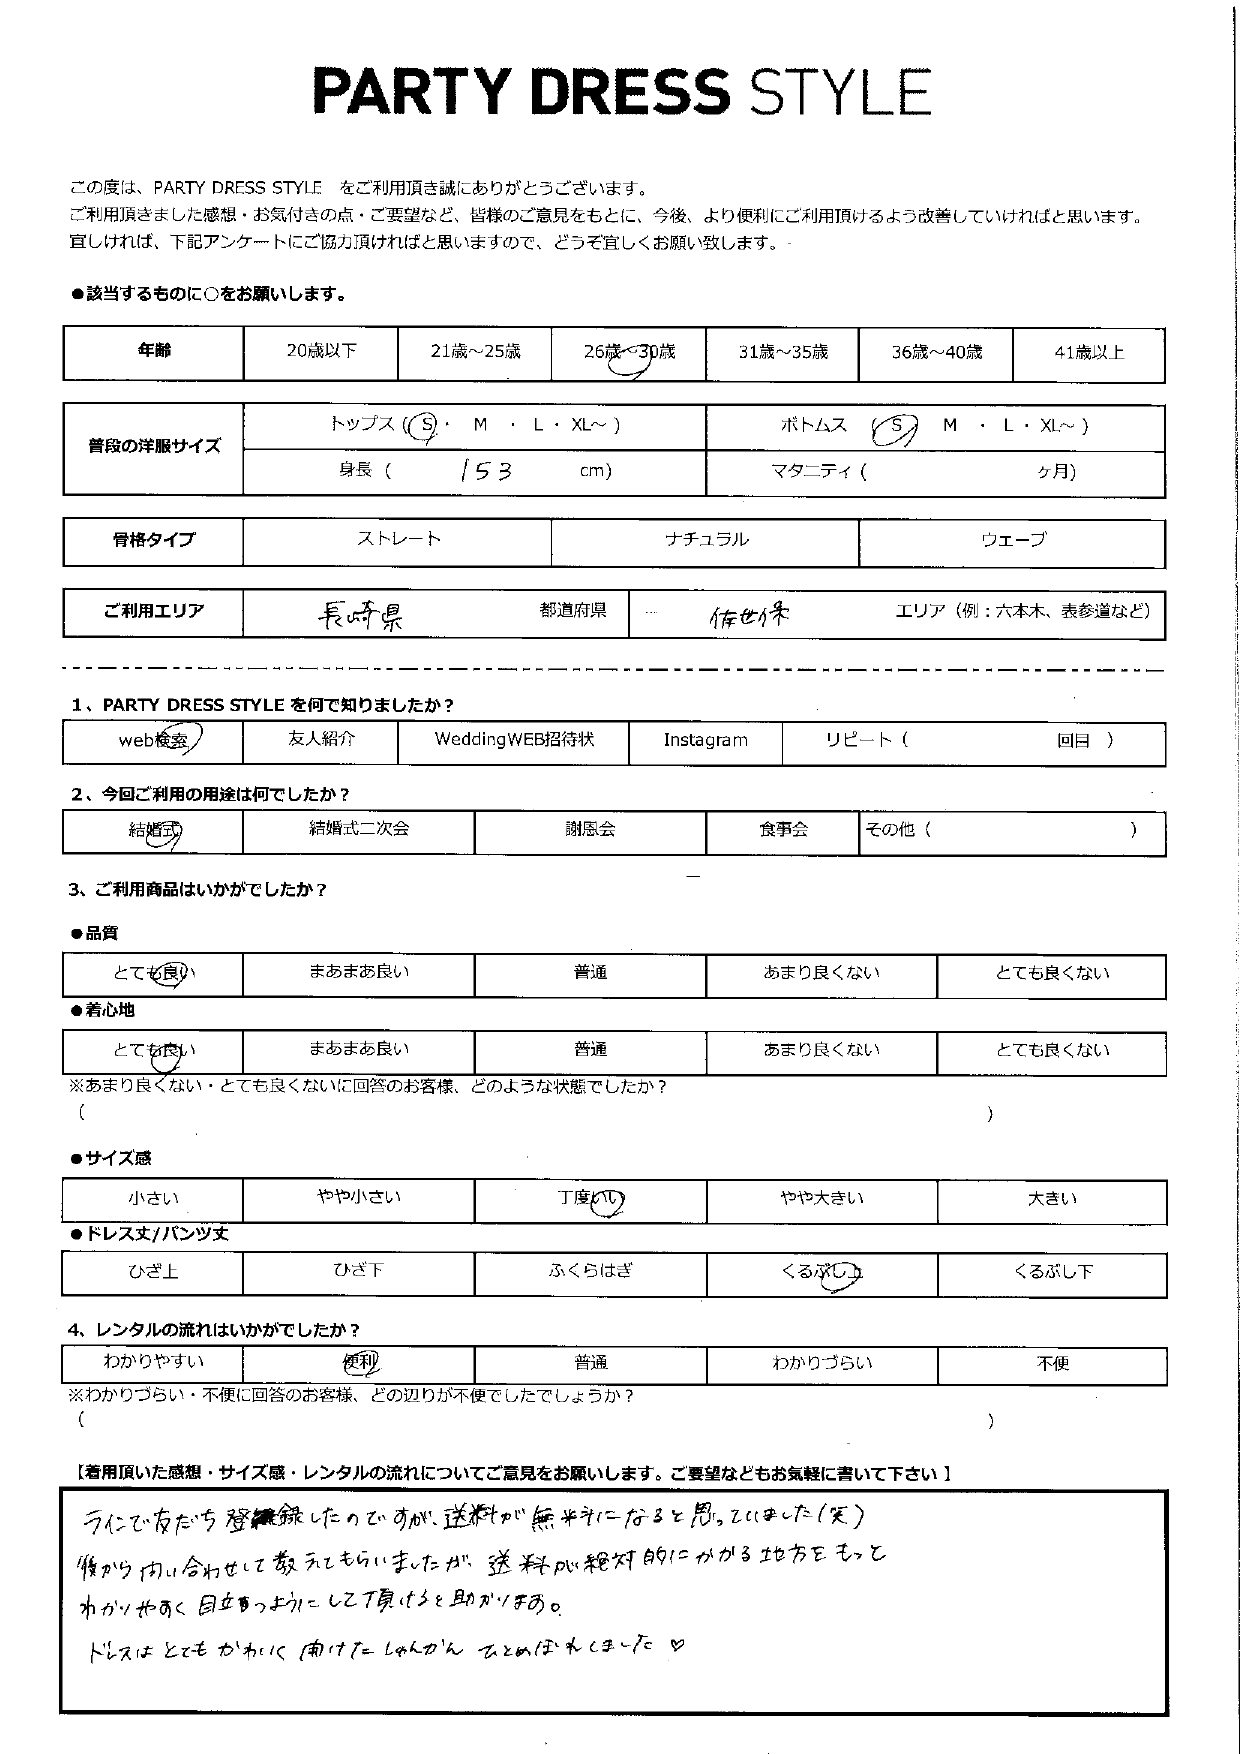 PARTY DRESS STYLE
この度は、PARTY DRESS STYLE をご利用頂き誠にありがとうございます。
ご利用頂きました感想・お気付きの点・ご要望など、皆様のご意見をもとに、今後、より便利にご利用頂けるよう改善していければと思います。
宜しければ、下記アンケートにご協力頂ければと思いますので、どうぞ宜しくお願い致します。
●該当するものに○をお願いします。
年齢 20歳以下 21歳～25歳 26歳～30歳 31歳～35歳 36歳～40歳 41歳以上
普段の洋服サイズ トップス (S・ M ・ L・XL～) ボトムス (S) M ・ L・XL～)
身長 ( 153 cm) マタニティ ( ヶ月)
骨格タイプ ストレート ナチュラル ウェーブ
ご利用エリア 長崎県 都道府県 佐世保 エリア（例：六本木、表参道など）
1、PARTY DRESS STYLE を何で知りましたか？
web検索 友人紹介 WeddingWEB招待状 Instagram リピート ( 回目 )
2、今回ご利用の用途は何でしたか？
結婚式 結婚式二次会 謝恩会 食事会 その他 ( )
3、ご利用商品はいかがでしたか？
●品質
とても良い まあまあ良い 普通 あまり良くない とても良くない
●着心地
とても良い まあまあ良い 普通 あまり良くない とても良くない
※あまり良くない・とても良くないに回答のお客様、どのような状態でしたか？
( )
●サイズ感
小さい やや小さい 丁度いい やや大きい 大きい
●ドレス丈/パンツ丈
ひざ上 ひざ下 ふくらはぎ くるぶし上 くるぶし下
4、レンタルの流れはいかがでしたか？
わかりやすい 便利 普通 わかりづらい 不便
※わかりづらい・不便に回答のお客様、どの辺りが不便でしたでしょうか？
( )
【着用頂いた感想・サイズ感・レンタルの流れについてご意見をお願いします。ご要望などもお気軽に書いて下さい】
ラインで友だち登録したのですが、送料が無料になると思っていました(笑)
後から問い合わせして教えてもらいましたが、送料が絶対的にかかる地方をもっと
わかりやすく目立つようにして頂けると助かります。
ドレスはとてもかわいく開けたしゅんかんひとめぼれしました♡